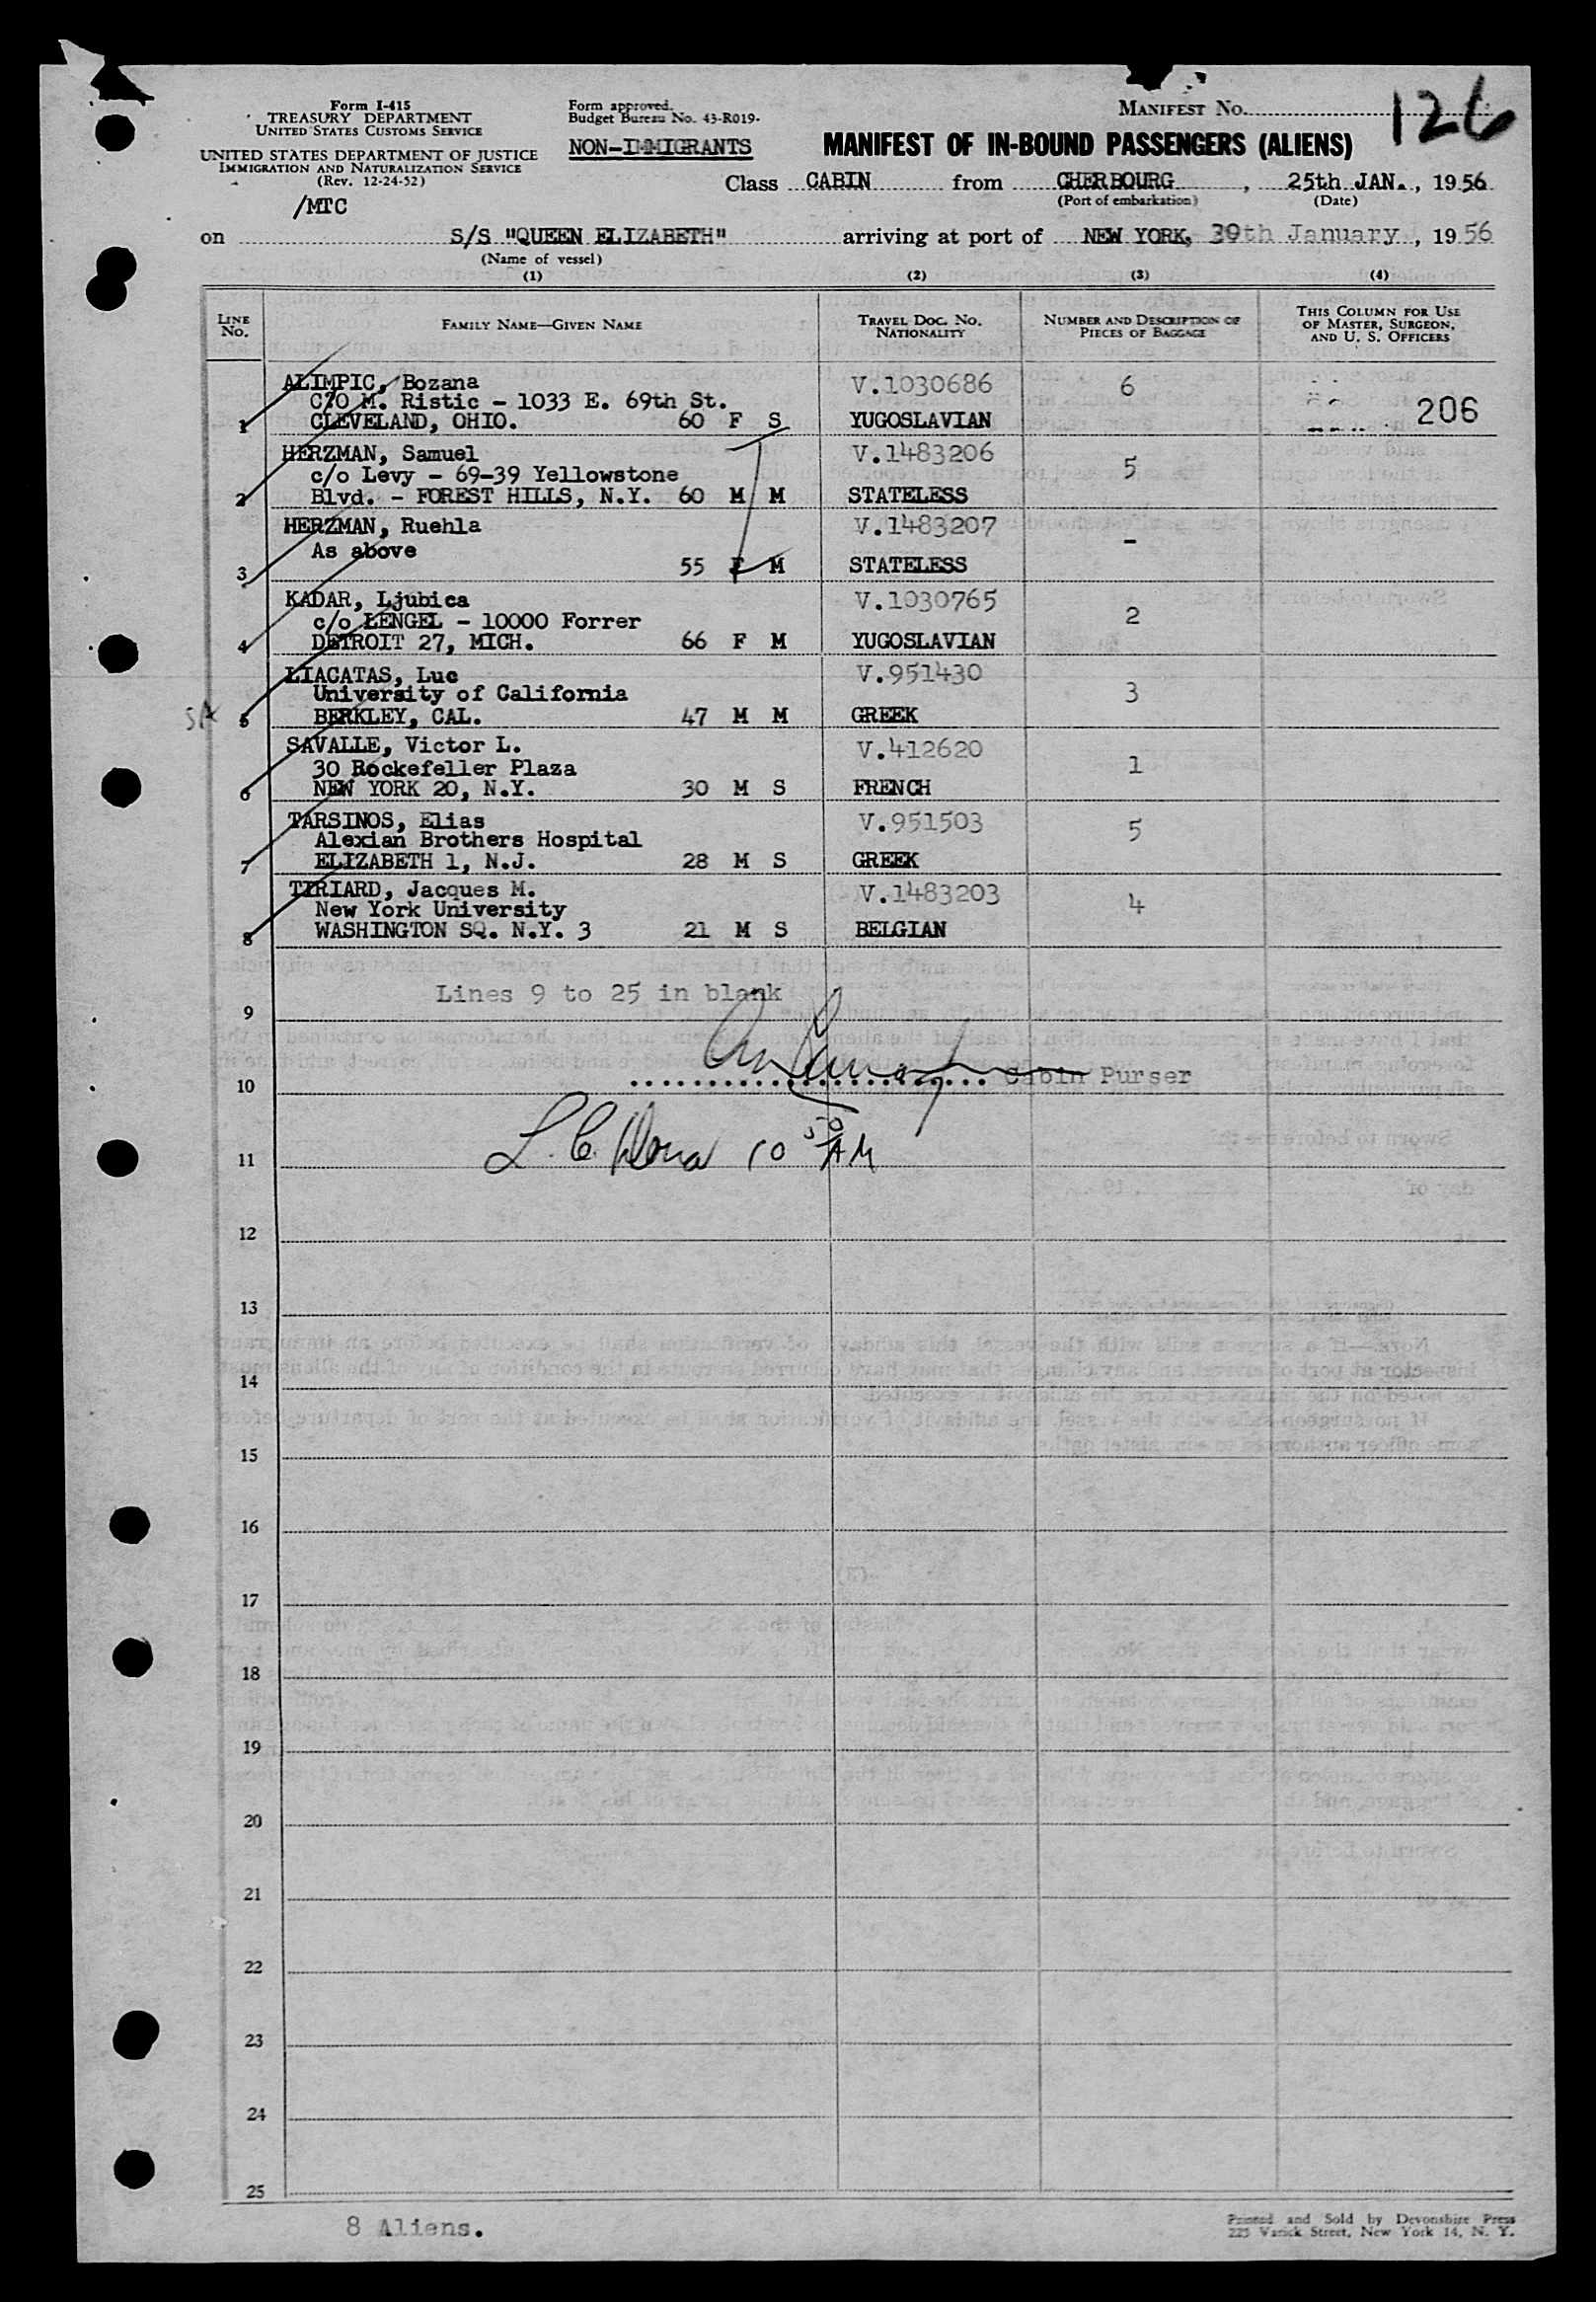 Form I-415
TREASURY DEPARTMENT
UNITED STATES CUSTOMS SERVICE
UNITED STATES DEPARTMENT OF JUSTICE
IMMIGRATION AND NATURALIZATION SERVICE
(Rev. 12-24-52)
/MTC
Form approved.
Budget Bureau No. 43-R019.
NON-IMMIGRANTS
MANIFEST NO. 126
MANIFEST OF IN-BOUND PASSENGERS (ALIENS)
Class CABIN from CHERBOURG, 25th JAN., 1956
(Port of embarkation) (Date)
on S/S "QUEEN ELIZABETH" arriving at port of NEW YORK, 39th January, 1956
(Name of vessel)
(1) (2) (3) (4)
LINE NO. FAMILY NAME—GIVEN NAME TRAVEL DOC. NO. NATIONALITY NUMBER AND DESCRIPTION OF PIECES OF BAGGAGE THIS COLUMN FOR USE OF MASTER, SURGEON, AND U. S. OFFICERS
ALIMPIC, Bozana V.1030686 6
C/O M. Ristic - 1033 E. 69th St. 206
1 CLEVELAND, OHIO. 60 F S YUGOSLAVIAN
HERZMAN, Samuel V.1483206
c/o Levy - 69-39 Yellowstone 5
2 Blvd. - FOREST HILLS, N.Y. 60 M M STATELESS
HERZMAN, Ruehla V.1483207
As above -
3 55 F M STATELESS
KADAR, Ljubica V.1030765
c/o LENGEL - 10000 Forrer 2
4 DETROIT 27, MICH. 66 F M YUGOSLAVIAN
LIACATAS, Luc V.951430
University of California 3
5 BERKLEY, CAL. 47 M M GREEK
SAVALLE, Victor L. V.412620
30 Rockefeller Plaza 1
6 NEW YORK 20, N.Y. 30 M S FRENCH
TARSINOS, Elias V.951503
Alexian Brothers Hospital 5
7 ELIZABETH 1, N.J. 28 M S GREEK
TIRIARD, Jacques M. V.1483203
New York University 4
8 WASHINGTON SQ. N.Y. 3 21 M S BELGIAN
Lines 9 to 25 in blank
9
10 Cabin Purser
L. C. 10 50 AM
11
12
13
14
15
16
17
18
19
20
21
22
23
24
25
8 Aliens.
Printed and Sold by Devonshire Press
225 Varick Street, New York 14, N. Y.